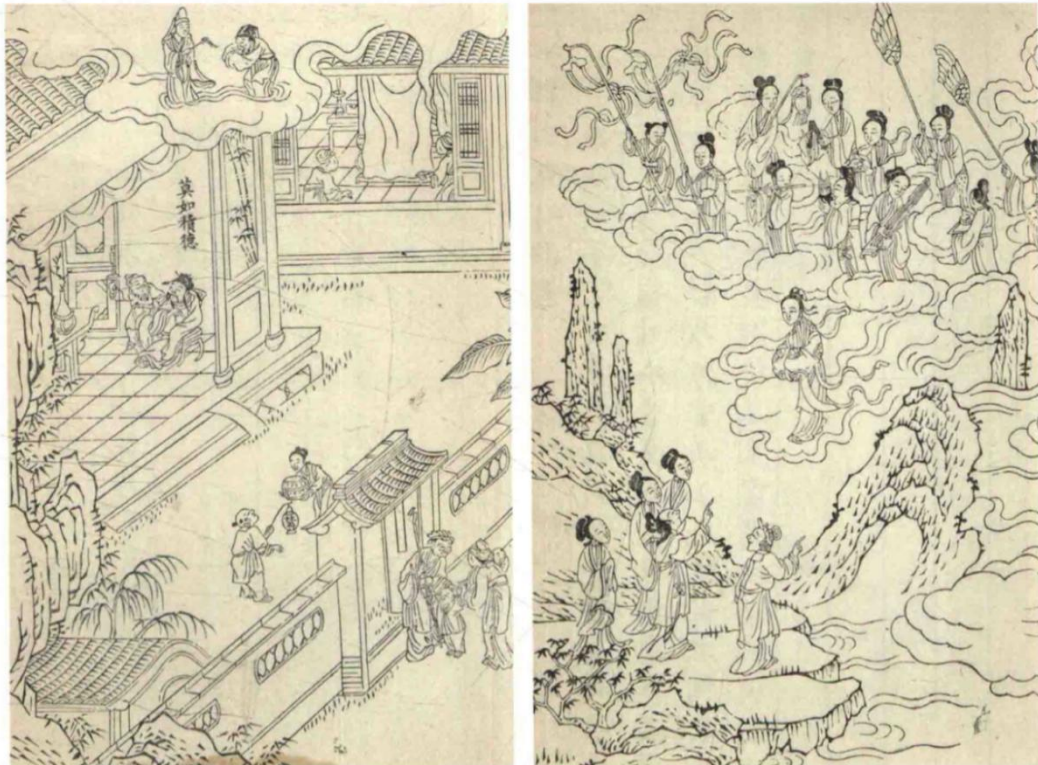 莫如積德